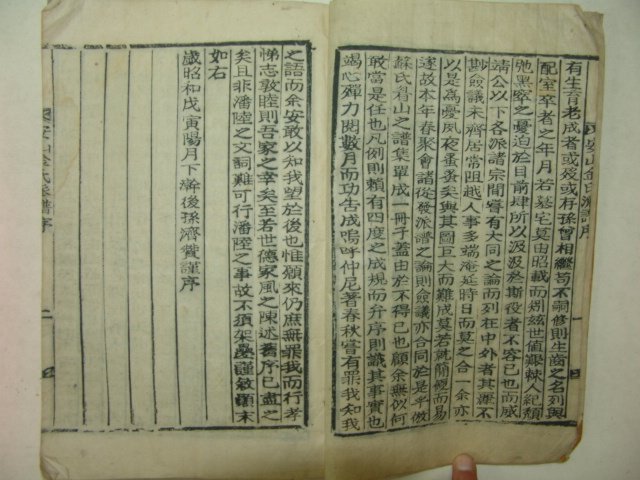 有生齊老成者或歿或存孫曾相繼苟不嗣修則生齒之名列與
配室卒者之年月若墓宅莫由昭載而矧玆世値艱棘人紀頹
弛黑窣之憂迫於目前肆所以汲汲於斯役者不容已也而咸
靖公以下各派諸宗間嘗有大同之論而列在中外者其麗不
尠僉議未齊居常阻越人事多端淹延時日而莫之合一余亦
以是爲憂夙夜蚤蚤矣與其圖巨大而難成莫若就簡便而易
遂故本年春聚會諸從發派譜之論則僉議亦合同於是乎倣
蘇氏眉山之譜集單成一冊子蓋由於不得已也顧余無似何
敢當是任也凡例則賴有四度之成規而弁序則識其事實也
竭心殫力閱數月而功告成嗚呼仲尼著春秋嘗有罪我知我
之語而余安敢以知我望於後也惟願來仍庶無罪我而行孝
悌志敦睦則吾家之幸矣至若世德家風之陳述舊序已盡之
矣且非潘陸之文詞難可行潘陸之事故不須架疊謹敘顚末
如右
歲昭和戊寅陽月下澣後孫濟贊謹序